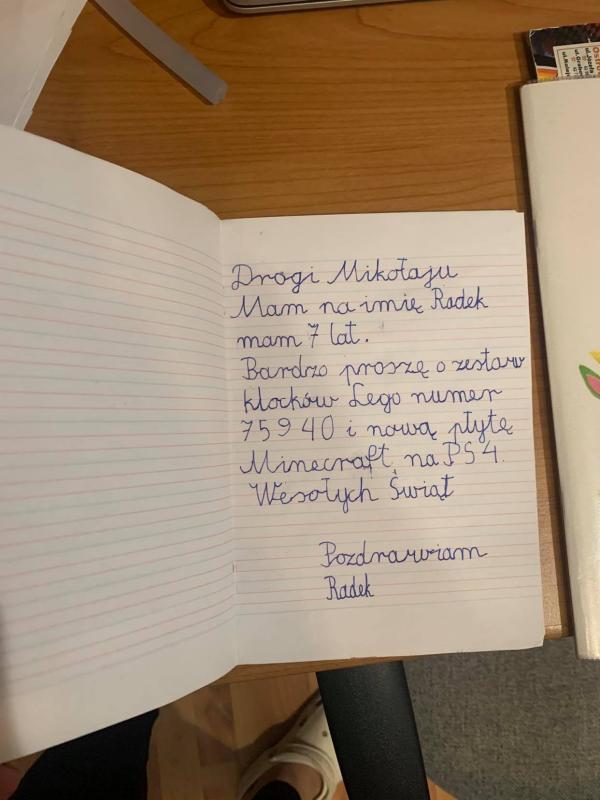 Drogi Mikołaju
Mam na imię Radek
mam 7 lat.
Bardzo proszę o zestaw
klocków Lego numer
75940 i nową płytę
Minecraft na PS4.
Wesołych Świąt
Pozdrawiam
Radek